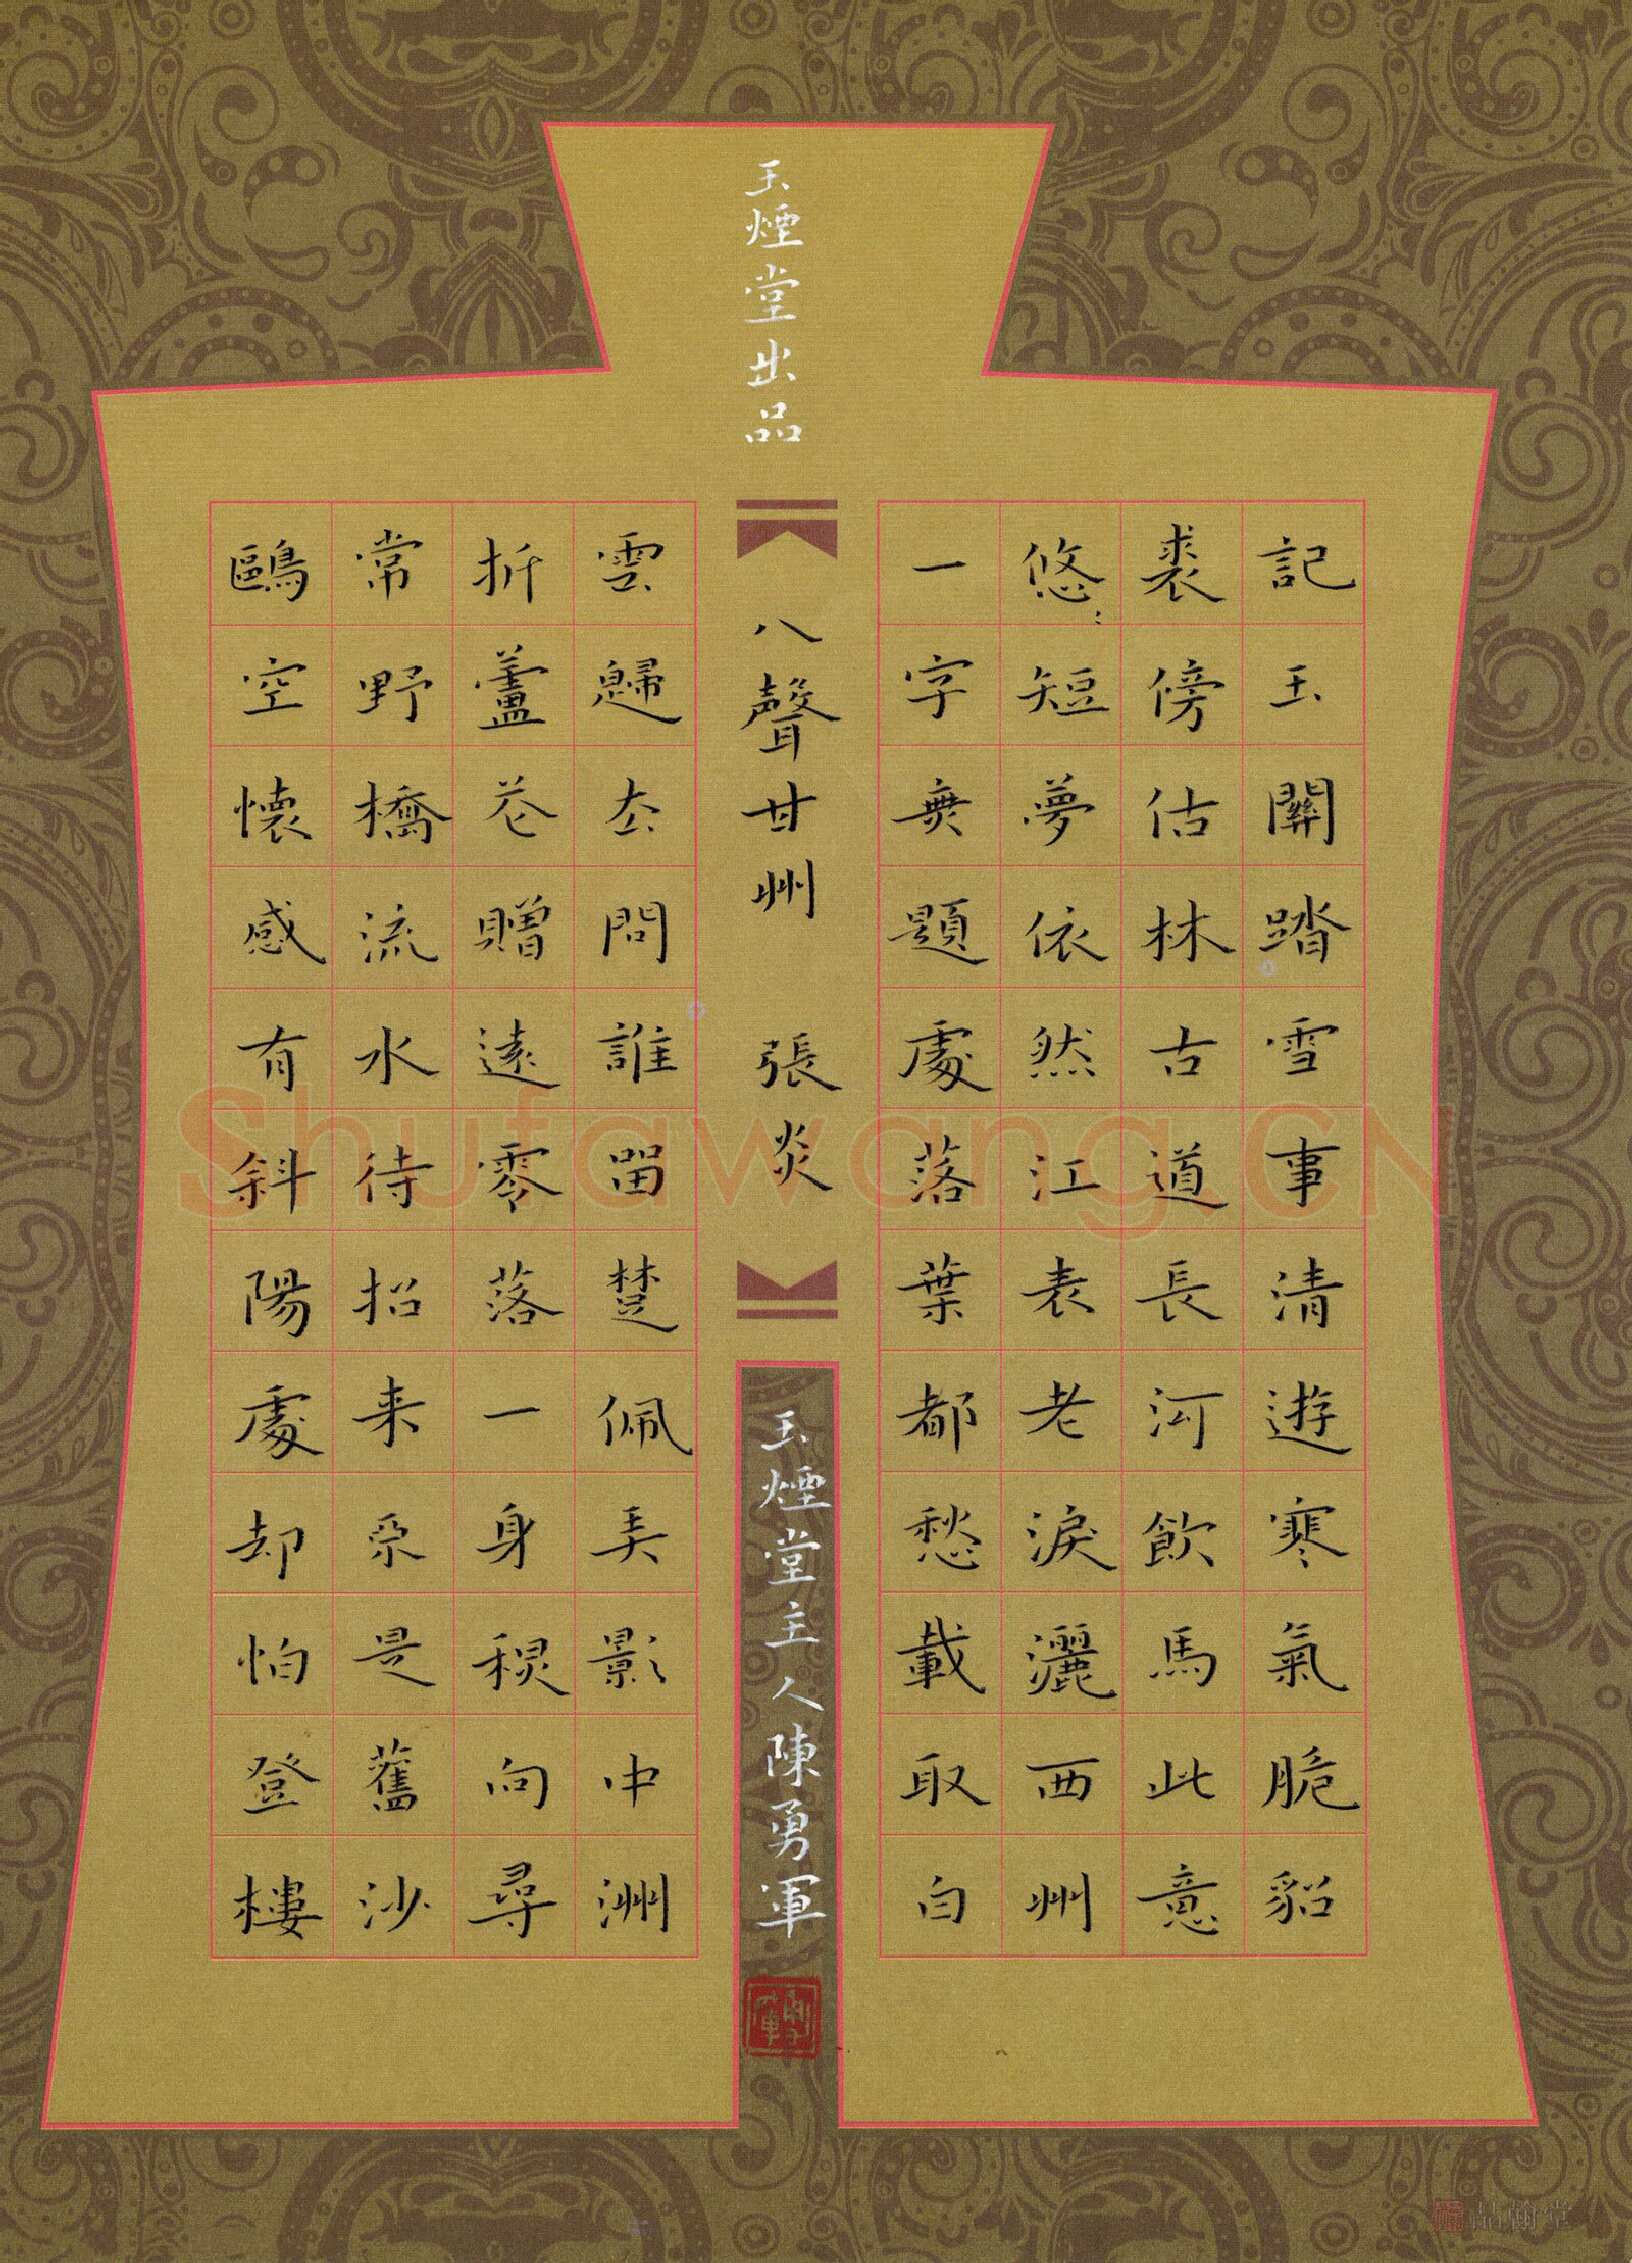 玉煙堂出品
記玉關踏雪事清遊寒氣脆貂
裘傍估林古道長河飲馬此意
悠〻短夢依然江表老淚灑西州
一字無題處落葉都愁載取白
八聲甘州 張炎
雲歸去問誰留楚佩弄影中洲
折蘆花贈遠零落一身秋向尋
常野橋流水待招来不是舊沙
鷗空懷感有斜陽處却怕登樓
玉煙堂主人陳勇軍
Shufawang.CN
品翰堂